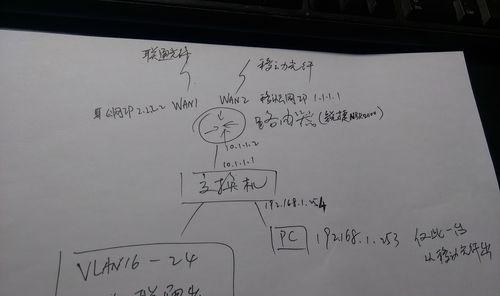 联通光纤
移动光纤
联网IP 2.2.2.2 WAN1 WAN2 移动网IP 1.1.1.1
路由器(锐捷
10.1.1.2
10.1.1.1
交换机
192.168.1.254
PC 192.168.1.253 仅此一台
从移动光纤出
VLAN16-24